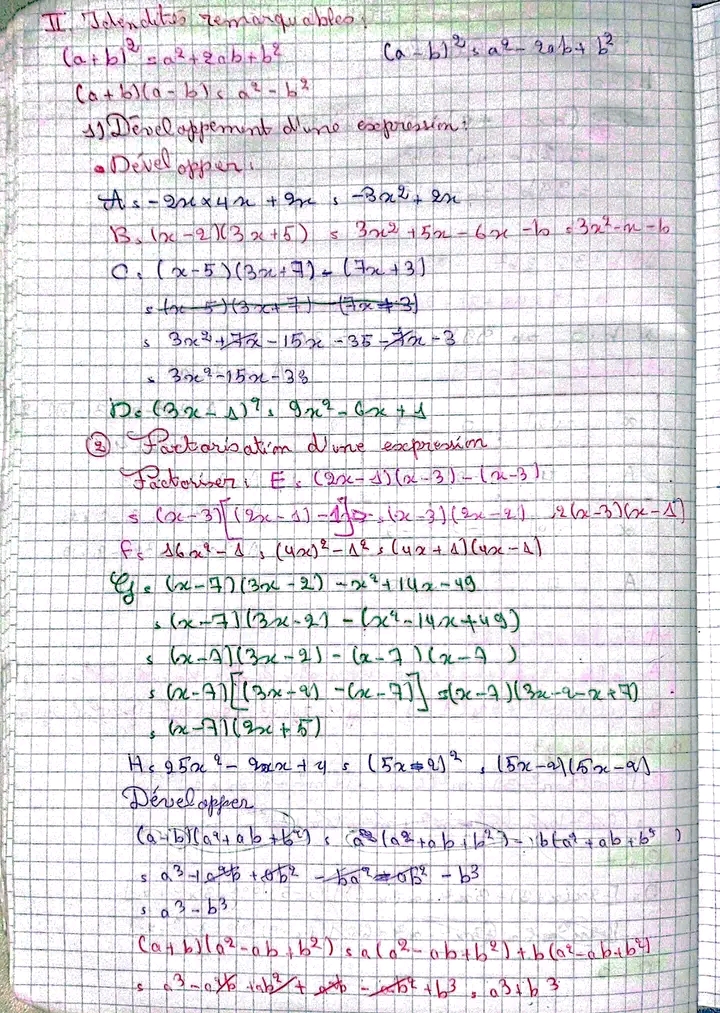 II. Idendités remarquables :
(a+b)² = a²+2ab+b² (a-b)² = a²-2ab+b²
(a+b)(a-b) = a²-b²
1) Développement d'une expression :
• Développer :
A = -2x×4x+2x = -3x²+2x
B = (x-2)(3x+5) = 3x²+5x-6x-10 = 3x²-x-10
C = (x-5)(3x+7)-(7x+3)
= (x-5)(3x+7)-(7x+3)
= 3x²+7x-15x-35-7x-3
= 3x²-15x-38
D = (3x-1)² = 9x²-6x+1
② Factorisation d'une expression
Factoriser : E = (2x-1)(x-3)-(x-3)
= (x-3)[(2x-1)-1] = (x-3)(2x-2) = 2(x-3)(x-1)
F = 16x²-1 = (4x)²-1² = (4x+1)(4x-1)
G = (x-7)(3x-2)-x²+14x-49
= (x-7)(3x-2)-(x²-14x+49)
= (x-7)(3x-2)-(x-7)(x-7)
= (x-7)[(3x-2)-(x-7)] = (x-7)(3x-2-x+7)
= (x-7)(2x+5)
H = 25x²-2xx+4 = (5x-2)² = (5x-2)(5x-2)
Développer
(a-b)(a²+ab+b²) = a(a²+ab+b²)-b(a²+ab+b²)
= a³+a²b+ab²-ba²-ab²-b³
= a³-b³
(a+b)(a²-ab+b²) = a(a²-ab+b²)+b(a²-ab+b²)
= a³-a²b+ab²+a²b-ab²+b³ = a³+b³